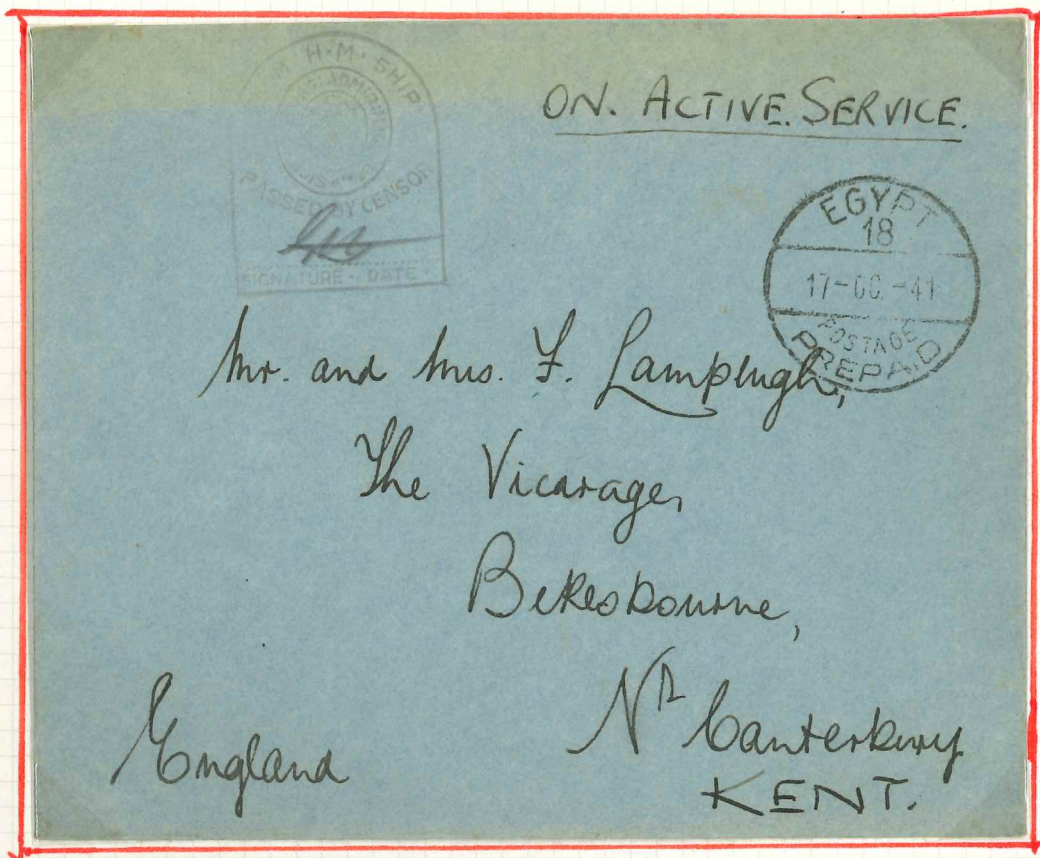 H·M·SHIP
PASSED BY CENSOR
SIGNATURE · DATE ·
ON. ACTIVE. SERVICE.
EGYPT
18
17-OC.-41
POSTAGE
PREPAID
Mr. and Mrs. F. Lamplugh,
The Vicarage,
Bekesbourne,
Nr Canterbury
KENT.
England